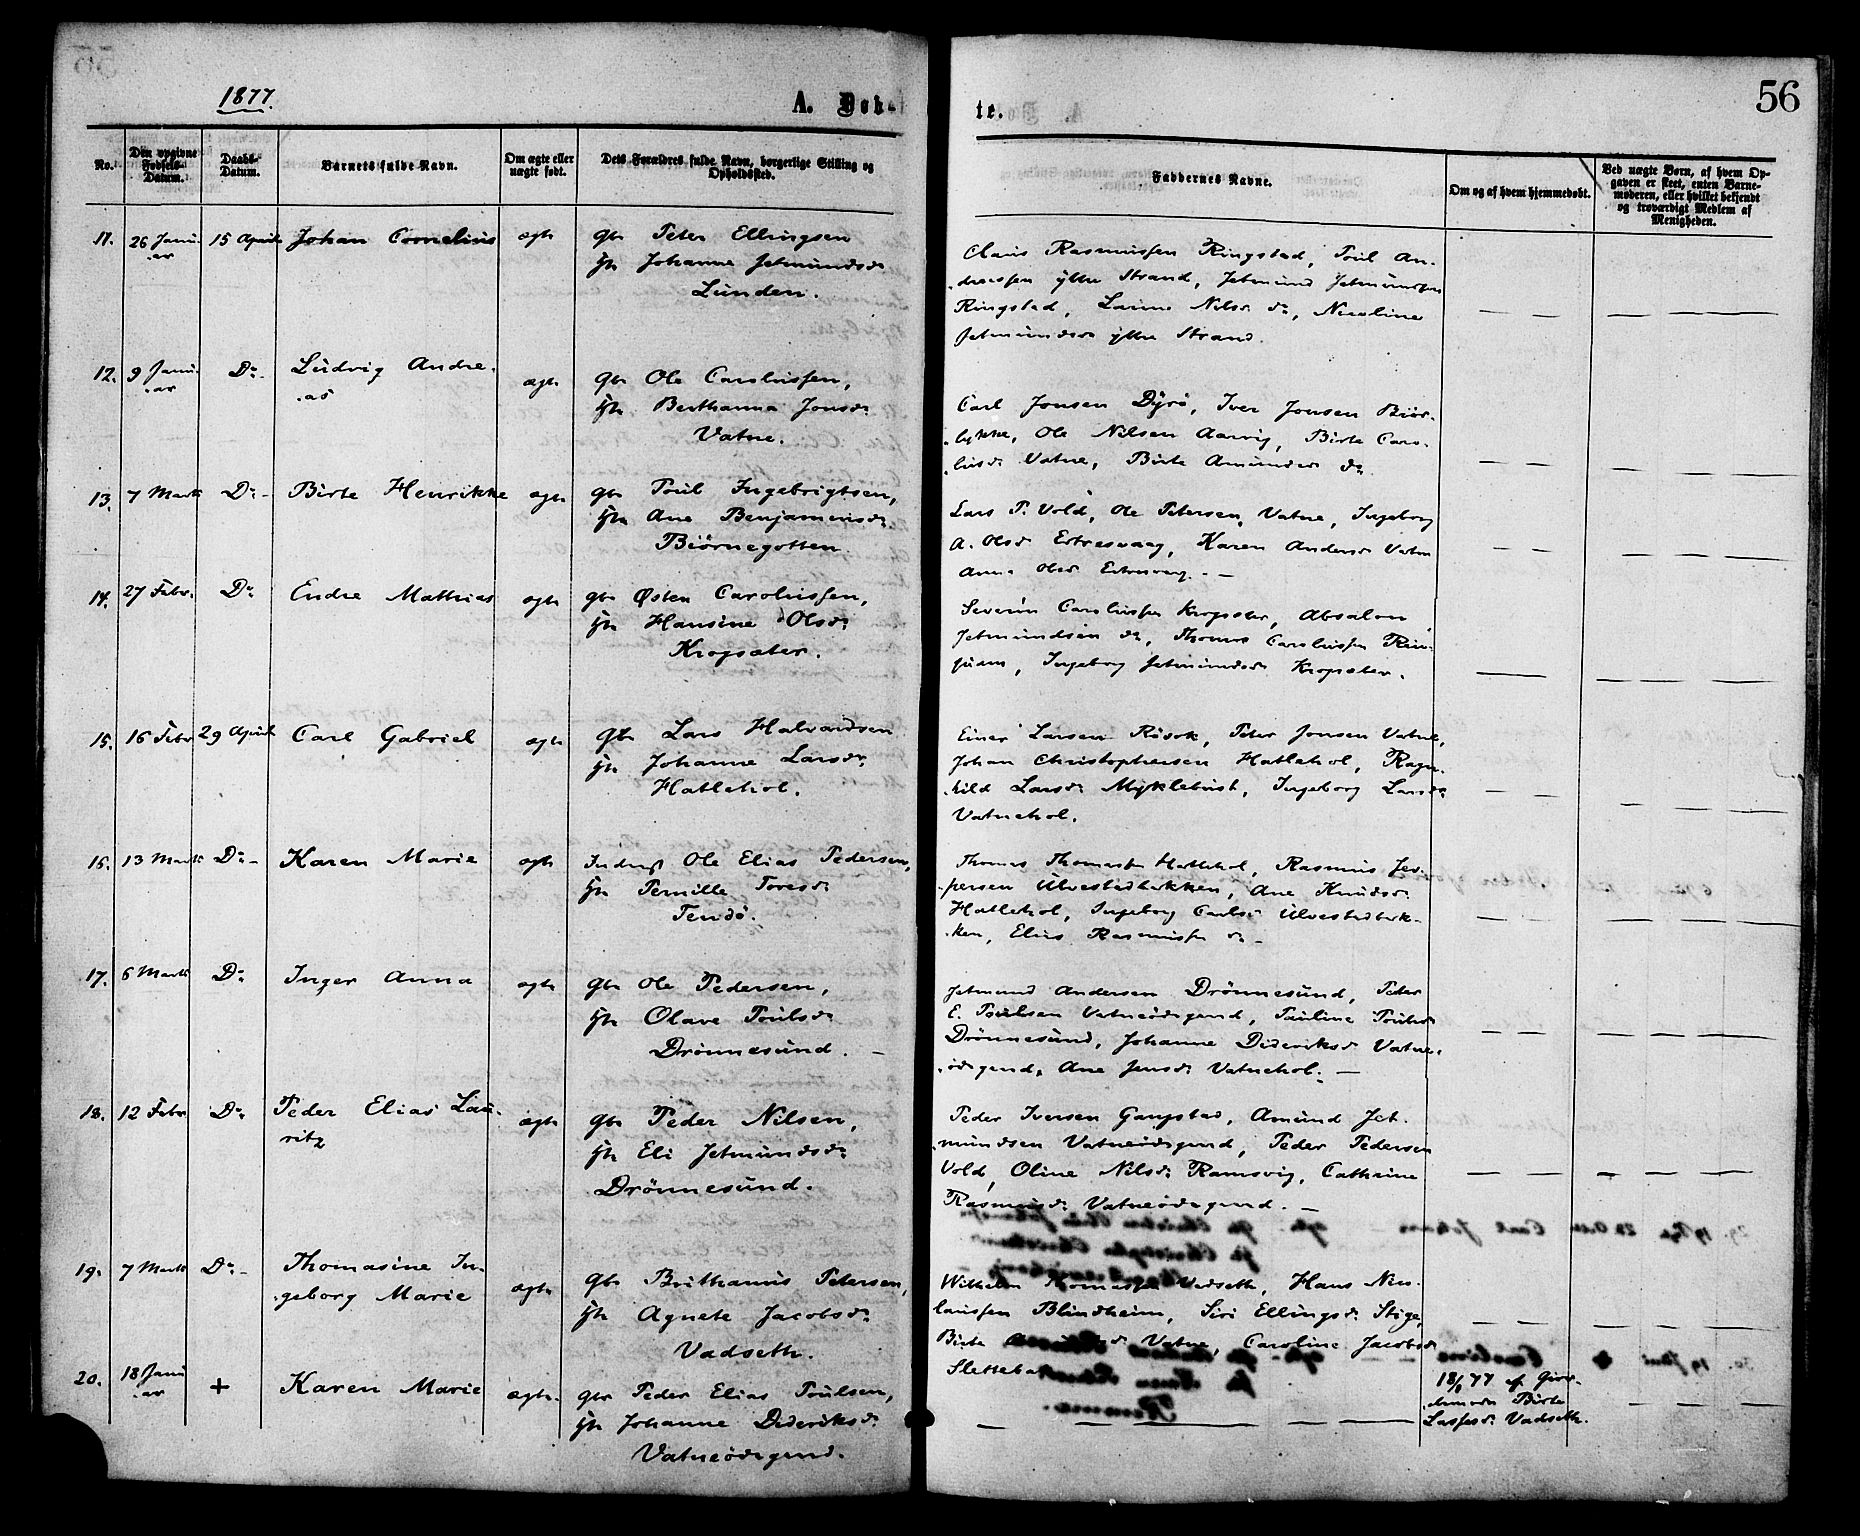 1877.
A. Døbte.
56
No.
Den opgivne Fødsels-Datum.
Daabs-Datum.
Barnets fulde Navn.
Om ægte eller uægte født.
Dets Forældres fulde Navn, borgerlige Stilling og Opholdssted.
Faddernes Navne.
Om og af hvem hjemmedøbt.
Ved uægte Børn, af hvem Opgaven er skeet, enten Barnemoderen, eller hvilket bekjendt og troværdigt Medlem af Menigheden.
11. 26 Janu-ar 15 April Johan Cornelius ægte
Gbr Peter Ellingsen
H Johanne Jetmundsdr
Lunden.
Claus Rasmussen Ringstad, Poul An-
dreassen yttre Strand, Jetmund Jetmundsen
Ringstad, Larine Nilsdr do, Nicoline
Jetmundsdr yttre Strand.
12. 9 Janu-ar Do Ludvig Andre-
as ægte
Gbr Ole Carolussen,
H Berthanna Jonsdr
Vatne.
Carl Jonsen Dyrö, Iver Jonsen Biör-
lykke, Ole Nilsen Aarvig, Birte Caro-
lusdr Vatne, Birte Amundsdr do
13. 7 Marts Do Birte Henrikke ægte
Gbr Poul Ingebrigtsen,
H Ane Benjaminsdr
Biørnegotten.
Lars P. Vold, Ole Petersen, Vatne, Ingeborg
A. Olsdr Ertresvaag, Karen Andersdr Vatne
Anne Olsdr Ertresvaag. —
14. 27 Febr. Do Endre Mathias ægte
Gbr Østen Carolussen,
H Hansine Olsdr
Krogsæter.
Severin Carolussen Krogsæter, Absalon
Jetmundsen do, Thomas Carolussen
Ingeborg Jetmundsdr Krogsæter.
15. 16 Febr 29 April Carl Gabriel ægte
Gbr Lars Halvardsen
H Johanne Larsdr
Hatlehol.
Einer Larsen Rövik, Peter Jonsen Vatne,
Johan Christophersen Hatlehol, Ragn-
hild Larsdr Myklebust, Ingeborg Larsdr
Vatnehol.
16. 13 Marts Do Karen Marie ægte
Inderst Ole Elias Pedersen,
H Pernille Toresdr
Tendö.
Thomas Thomassen Hatlehol, Rasmus Jes-
persen Ulvestadbakken, Ane Knudsdr
Hatlehol, Ingeborg Carlsdr Ulvestadbak-
ken, Elias Rasmussen do —
17. 6 Marts Do Inger Anna ægte
Gbr Ole Pedersen,
H Olave Poulsdr
Drönnesund. —
Jetmund Andersen Drönnesund, Peder
E. Poulsen Vatneödegaard, Pauline Poulsdr
Drönnesund, Johanne Dideriksdr Vatne-
ödegaard, Ane Jensdr Vatnehol. —
18. 12 Febr Do Peder Elias Lau-
ritz ægte
Gbr Peder Nilsen,
H Eli Jetmundsdr
Drönnesund.
Peder Iversen Gangstad, Amund Jet-
mundsen Vatneödegaard, Peder Pedersen
Vold, Oline Nilsdr Ramsvig, Cathrine
Rasmusdr Vatneödegaard. —
19. 7 Marts Do Thomasine In-
geborg Marie ægte
Gbr Brithanus Petersen,
H Agnete Jacobsdr
Vadseth.
Wilhelm Thomassen Vadseth, Hans Nico-
laussen Blindheim, Siri Ellingsdr Stige,
Birte Vatne, Caroline Jacobsdr
Slettebak
20. 18 Janu-ar + Karen Marie ægte
Gbr Peder Elias Poulsen,
H Johanne Dideriksdr
Vatneödegaard.
18/1 77 af Gjor-
demoder Birte
Lassesdr Vadseth.